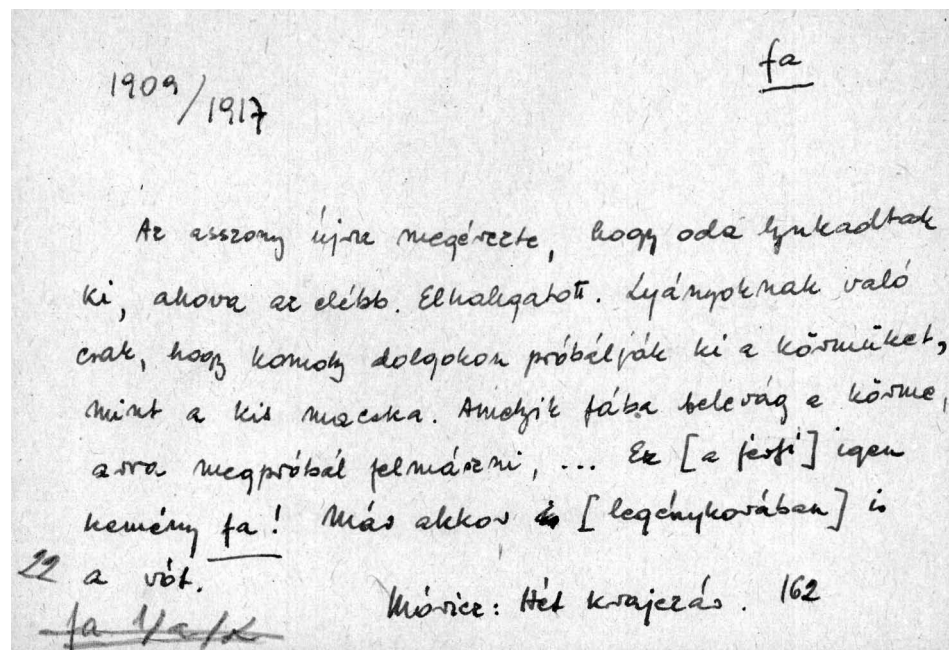 fa
1909/1917
Az asszony újra megérezte, hogy oda lyukadtak
ki, ahova az elébb. Elhalgatott. Lyányoknak való
csak, hogy komoly dolgokon próbálják ki a körmüket,
mint a kis macska. Amelyik fába belevág a körme,
arra megpróbál felmászni, ... Ez [a férfi] igen
kemény fa! Más akkor [legénykorában] is
22 a vót.
Móricz: Hét krajczár. 162
fa 1/a/